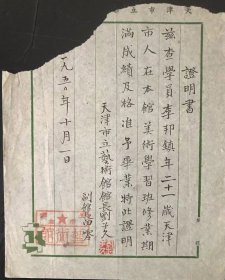 天津市立
證明書
茲查學員李邦鎮年二十一歲天津
市人在本館美術學習班修業期
滿成績及格准予畢業特此證明
天津市立藝術館館長劉子久
副館長
一九五〇年十月一日